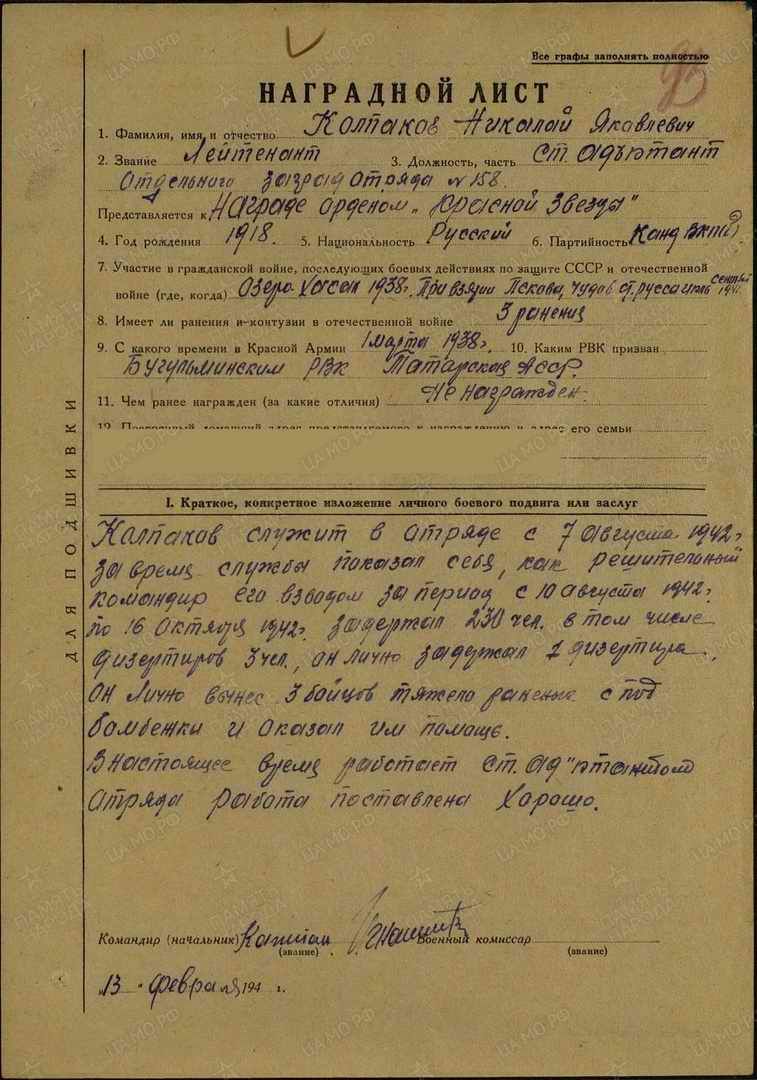 Все графы заполнять полностью
93
НАГРАДНОЙ ЛИСТ
1. Фамилия, имя и отчество Колпаков Николай Яковлевич
2. Звание Лейтенант 3. Должность, часть Ст. адъютант
Отдельного заград отряда № 158.
Представляется к Награде орденом „Красной Звезды"
4. Год рождения 1918. 5. Национальность Русский 6. Партийность Канд ВКП(б)
7. Участие в гражданской войне, последующих боевых действиях по защите СССР и отечественной
войне (где, когда) Озеро Хасан 1938г, При взятии Пскова, Чудов ст. русса 1941.
8. Имеет ли ранения и контузии в отечественной войне 3 ранения
9. С какого времени в Красной Армии 1 марта 1938г. 10. Каким РВК призван
Бугульминским РВК Татарской АССР.
11. Чем ранее награжден (за какие отличия) Не награжден.
его семьи
I. Краткое, конкретное изложение личного боевого подвига или заслуг
Колпаков служит в отряде с 7 августа 1942г
за время службы показал себя, как решительный
командир его взводом за период с 10 августа 1942г.
по 16 октября 1942г. задержал 230 чел. в том числе
дизертиров 3 чел., он лично задержал 1 дизертира.
он лично вынес 3 бойцов тяжело раненых с под
бомбежки и оказал им помощь.
В настоящее время работает ст. ад"ютантом
отряда работа поставлена хорошо.
Командир (начальник) Капитан Военный комиссар
(звание) (звание)
„13" Февраля 194 г.
ДЛЯ ПОДШИВКИ
ЦА МО РФ